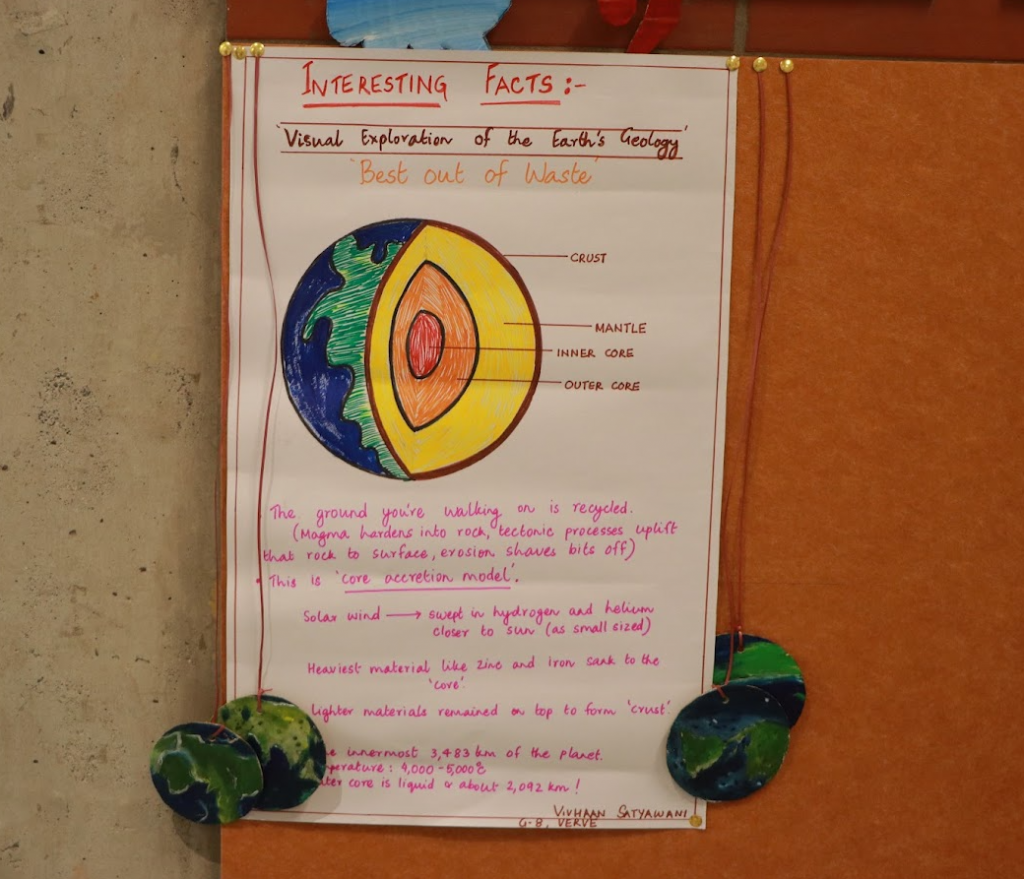 INTERESTING FACTS :-
'Visual Exploration of the Earth's Geology'
'Best out of Waste'
CRUST
MANTLE
INNER CORE
OUTER CORE
The ground you're walking on is recycled.
(Magma hardens into rock, tectonic processes uplift
that rock to surface, erosion shaves bits off)
This is 'core accretion model'.
Solar wind → swept in hydrogen and helium
closer to sun (as small sized)
Heaviest material like zinc and iron sank to the
'core'.
Lighter materials remained on top to form 'crust'
innermost 3,483 km of the planet.
4,000 - 5,000°C
core is liquid & about 2,092 km!
VIVHAAN SATYAWANI
G-8, VERVE